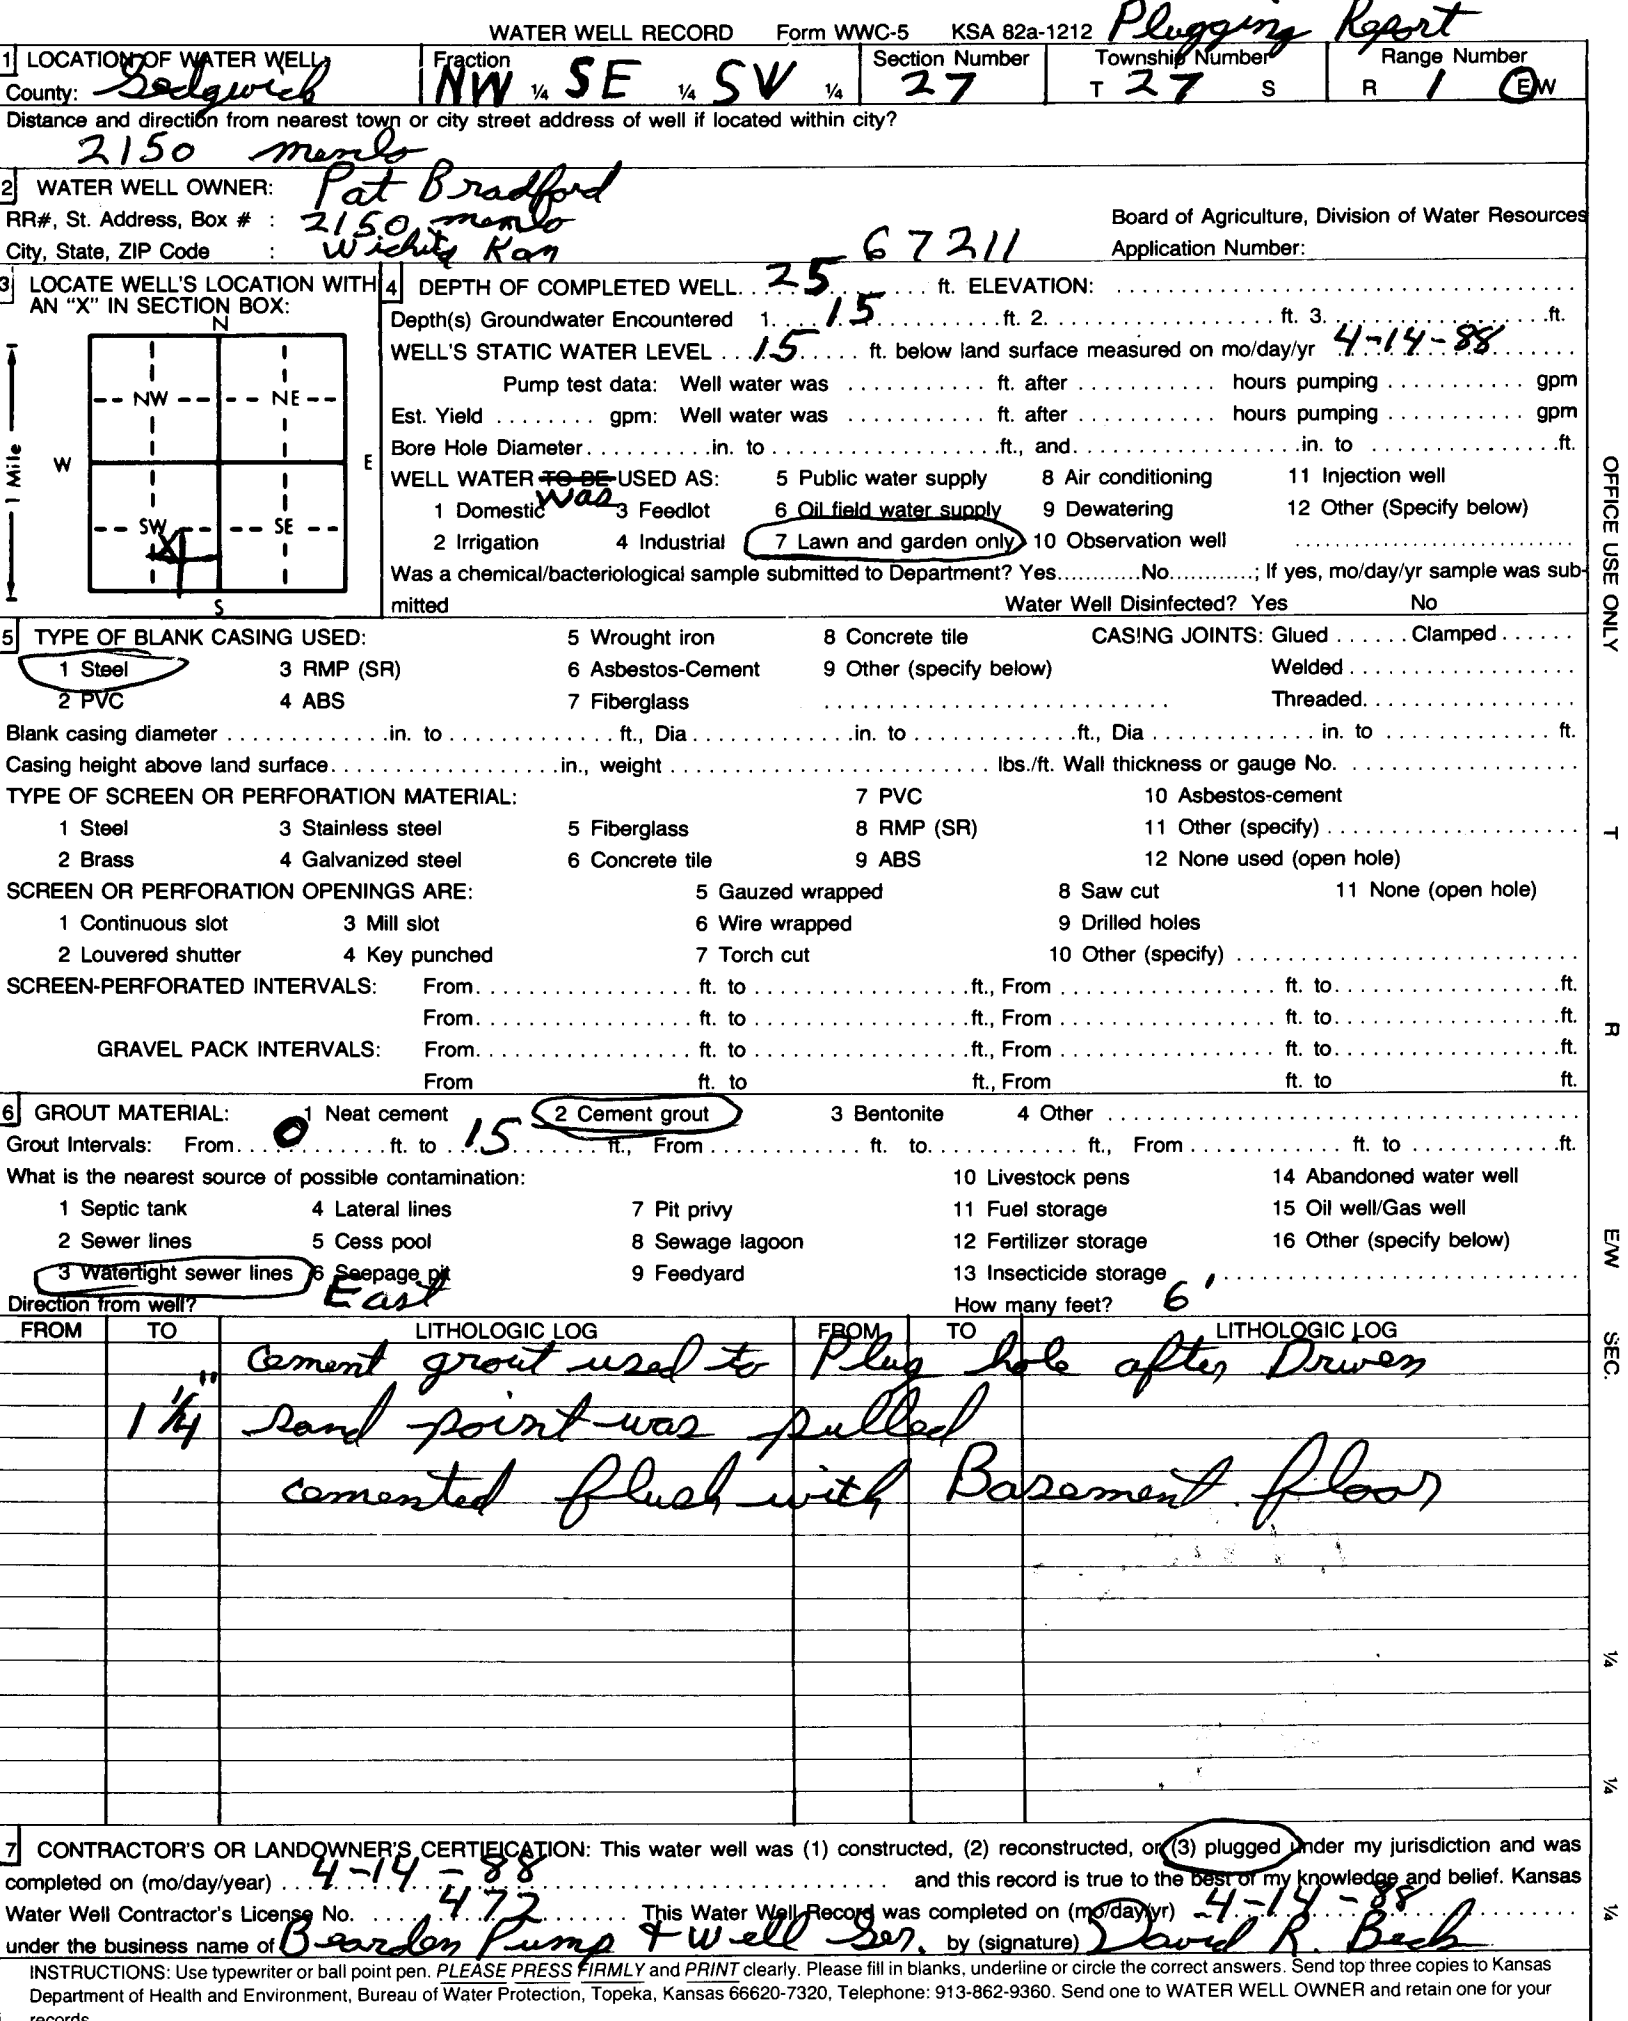 WATER WELL RECORD Form WWC-5 KSA 82a-1212 Plugging Report
1 LOCATION OF WATER WELL: Fraction Section Number Township Number Range Number
County: Sedgwick NW ¼ SE ¼ SW ¼ 27 T 27 S R 1 EW
Distance and direction from nearest town or city street address of well if located within city?
2150 menlo
2 WATER WELL OWNER: Pat Bradford
RR#, St. Address, Box # : 2150 menlo Board of Agriculture, Division of Water Resources
City, State, ZIP Code : Wichita Kan 67211 Application Number:
3 LOCATE WELL'S LOCATION WITH AN "X" IN SECTION BOX:
N
NW NE
W E
SW SE
X
S
1 Mile
4 DEPTH OF COMPLETED WELL. . 25 . . . ft. ELEVATION: . . . .
Depth(s) Groundwater Encountered 1. . 15 . . . ft. 2. . . . ft. 3. . . . ft.
WELL'S STATIC WATER LEVEL . . 15 . . ft. below land surface measured on mo/day/yr 4-14-88
Pump test data: Well water was . . . ft. after . . . hours pumping . . . gpm
Est. Yield . . . gpm: Well water was . . . ft. after . . . hours pumping . . . gpm
Bore Hole Diameter. . . in. to . . . ft., and. . . in. to . . . ft.
WELL WATER TO BE USED AS: 5 Public water supply 8 Air conditioning 11 Injection well
was
1 Domestic 3 Feedlot 6 Oil field water supply 9 Dewatering 12 Other (Specify below)
2 Irrigation 4 Industrial 7 Lawn and garden only 10 Observation well . . .
Was a chemical/bacteriological sample submitted to Department? Yes. . . No. . . ; If yes, mo/day/yr sample was sub-
mitted Water Well Disinfected? Yes No
5 TYPE OF BLANK CASING USED: 5 Wrought iron 8 Concrete tile CASING JOINTS: Glued . . . Clamped . . .
1 Steel 3 RMP (SR) 6 Asbestos-Cement 9 Other (specify below) Welded . . .
2 PVC 4 ABS 7 Fiberglass . . . Threaded. . .
Blank casing diameter . . . in. to . . . ft., Dia . . . in. to . . . ft., Dia . . . in. to . . . ft.
Casing height above land surface. . . in., weight . . . lbs./ft. Wall thickness or gauge No. . . .
TYPE OF SCREEN OR PERFORATION MATERIAL: 7 PVC 10 Asbestos-cement
1 Steel 3 Stainless steel 5 Fiberglass 8 RMP (SR) 11 Other (specify) . . .
2 Brass 4 Galvanized steel 6 Concrete tile 9 ABS 12 None used (open hole)
SCREEN OR PERFORATION OPENINGS ARE: 5 Gauzed wrapped 8 Saw cut 11 None (open hole)
1 Continuous slot 3 Mill slot 6 Wire wrapped 9 Drilled holes
2 Louvered shutter 4 Key punched 7 Torch cut 10 Other (specify) . . .
SCREEN-PERFORATED INTERVALS: From. . . ft. to . . . ft., From . . . ft. to. . . ft.
From. . . ft. to . . . ft., From . . . ft. to. . . ft.
GRAVEL PACK INTERVALS: From. . . ft. to . . . ft., From . . . ft. to. . . ft.
From ft. to ft., From ft. to ft.
6 GROUT MATERIAL: 1 Neat cement 2 Cement grout 3 Bentonite 4 Other . . .
Grout Intervals: From. . 0 . . ft. to . . 15 . . ft., From . . . ft. to. . . ft., From . . . ft. to . . . ft.
What is the nearest source of possible contamination: 10 Livestock pens 14 Abandoned water well
1 Septic tank 4 Lateral lines 7 Pit privy 11 Fuel storage 15 Oil well/Gas well
2 Sewer lines 5 Cess pool 8 Sewage lagoon 12 Fertilizer storage 16 Other (specify below)
3 Watertight sewer lines 6 Seepage pit 9 Feedyard 13 Insecticide storage . . .
Direction from well? East How many feet? 6'
FROM TO LITHOLOGIC LOG FROM TO LITHOLOGIC LOG
cement grout used to Plug hole after Driven
1 1/4" sand point was pulled
cemented flush with Basement floor
7 CONTRACTOR'S OR LANDOWNER'S CERTIFICATION: This water well was (1) constructed, (2) reconstructed, or (3) plugged under my jurisdiction and was
completed on (mo/day/year) . . 4-14-88 . . . and this record is true to the best of my knowledge and belief. Kansas
Water Well Contractor's License No. . . 472 . . . This Water Well Record was completed on (mo/day/yr) 4-14-88
under the business name of Bearden Pump & Well Ser. by (signature) David R. Beck
INSTRUCTIONS: Use typewriter or ball point pen. PLEASE PRESS FIRMLY and PRINT clearly. Please fill in blanks, underline or circle the correct answers. Send top three copies to Kansas
Department of Health and Environment, Bureau of Water Protection, Topeka, Kansas 66620-7320, Telephone: 913-862-9360. Send one to WATER WELL OWNER and retain one for your
records.
OFFICE USE ONLY
T
R
E/W
SEC.
¼
¼
¼